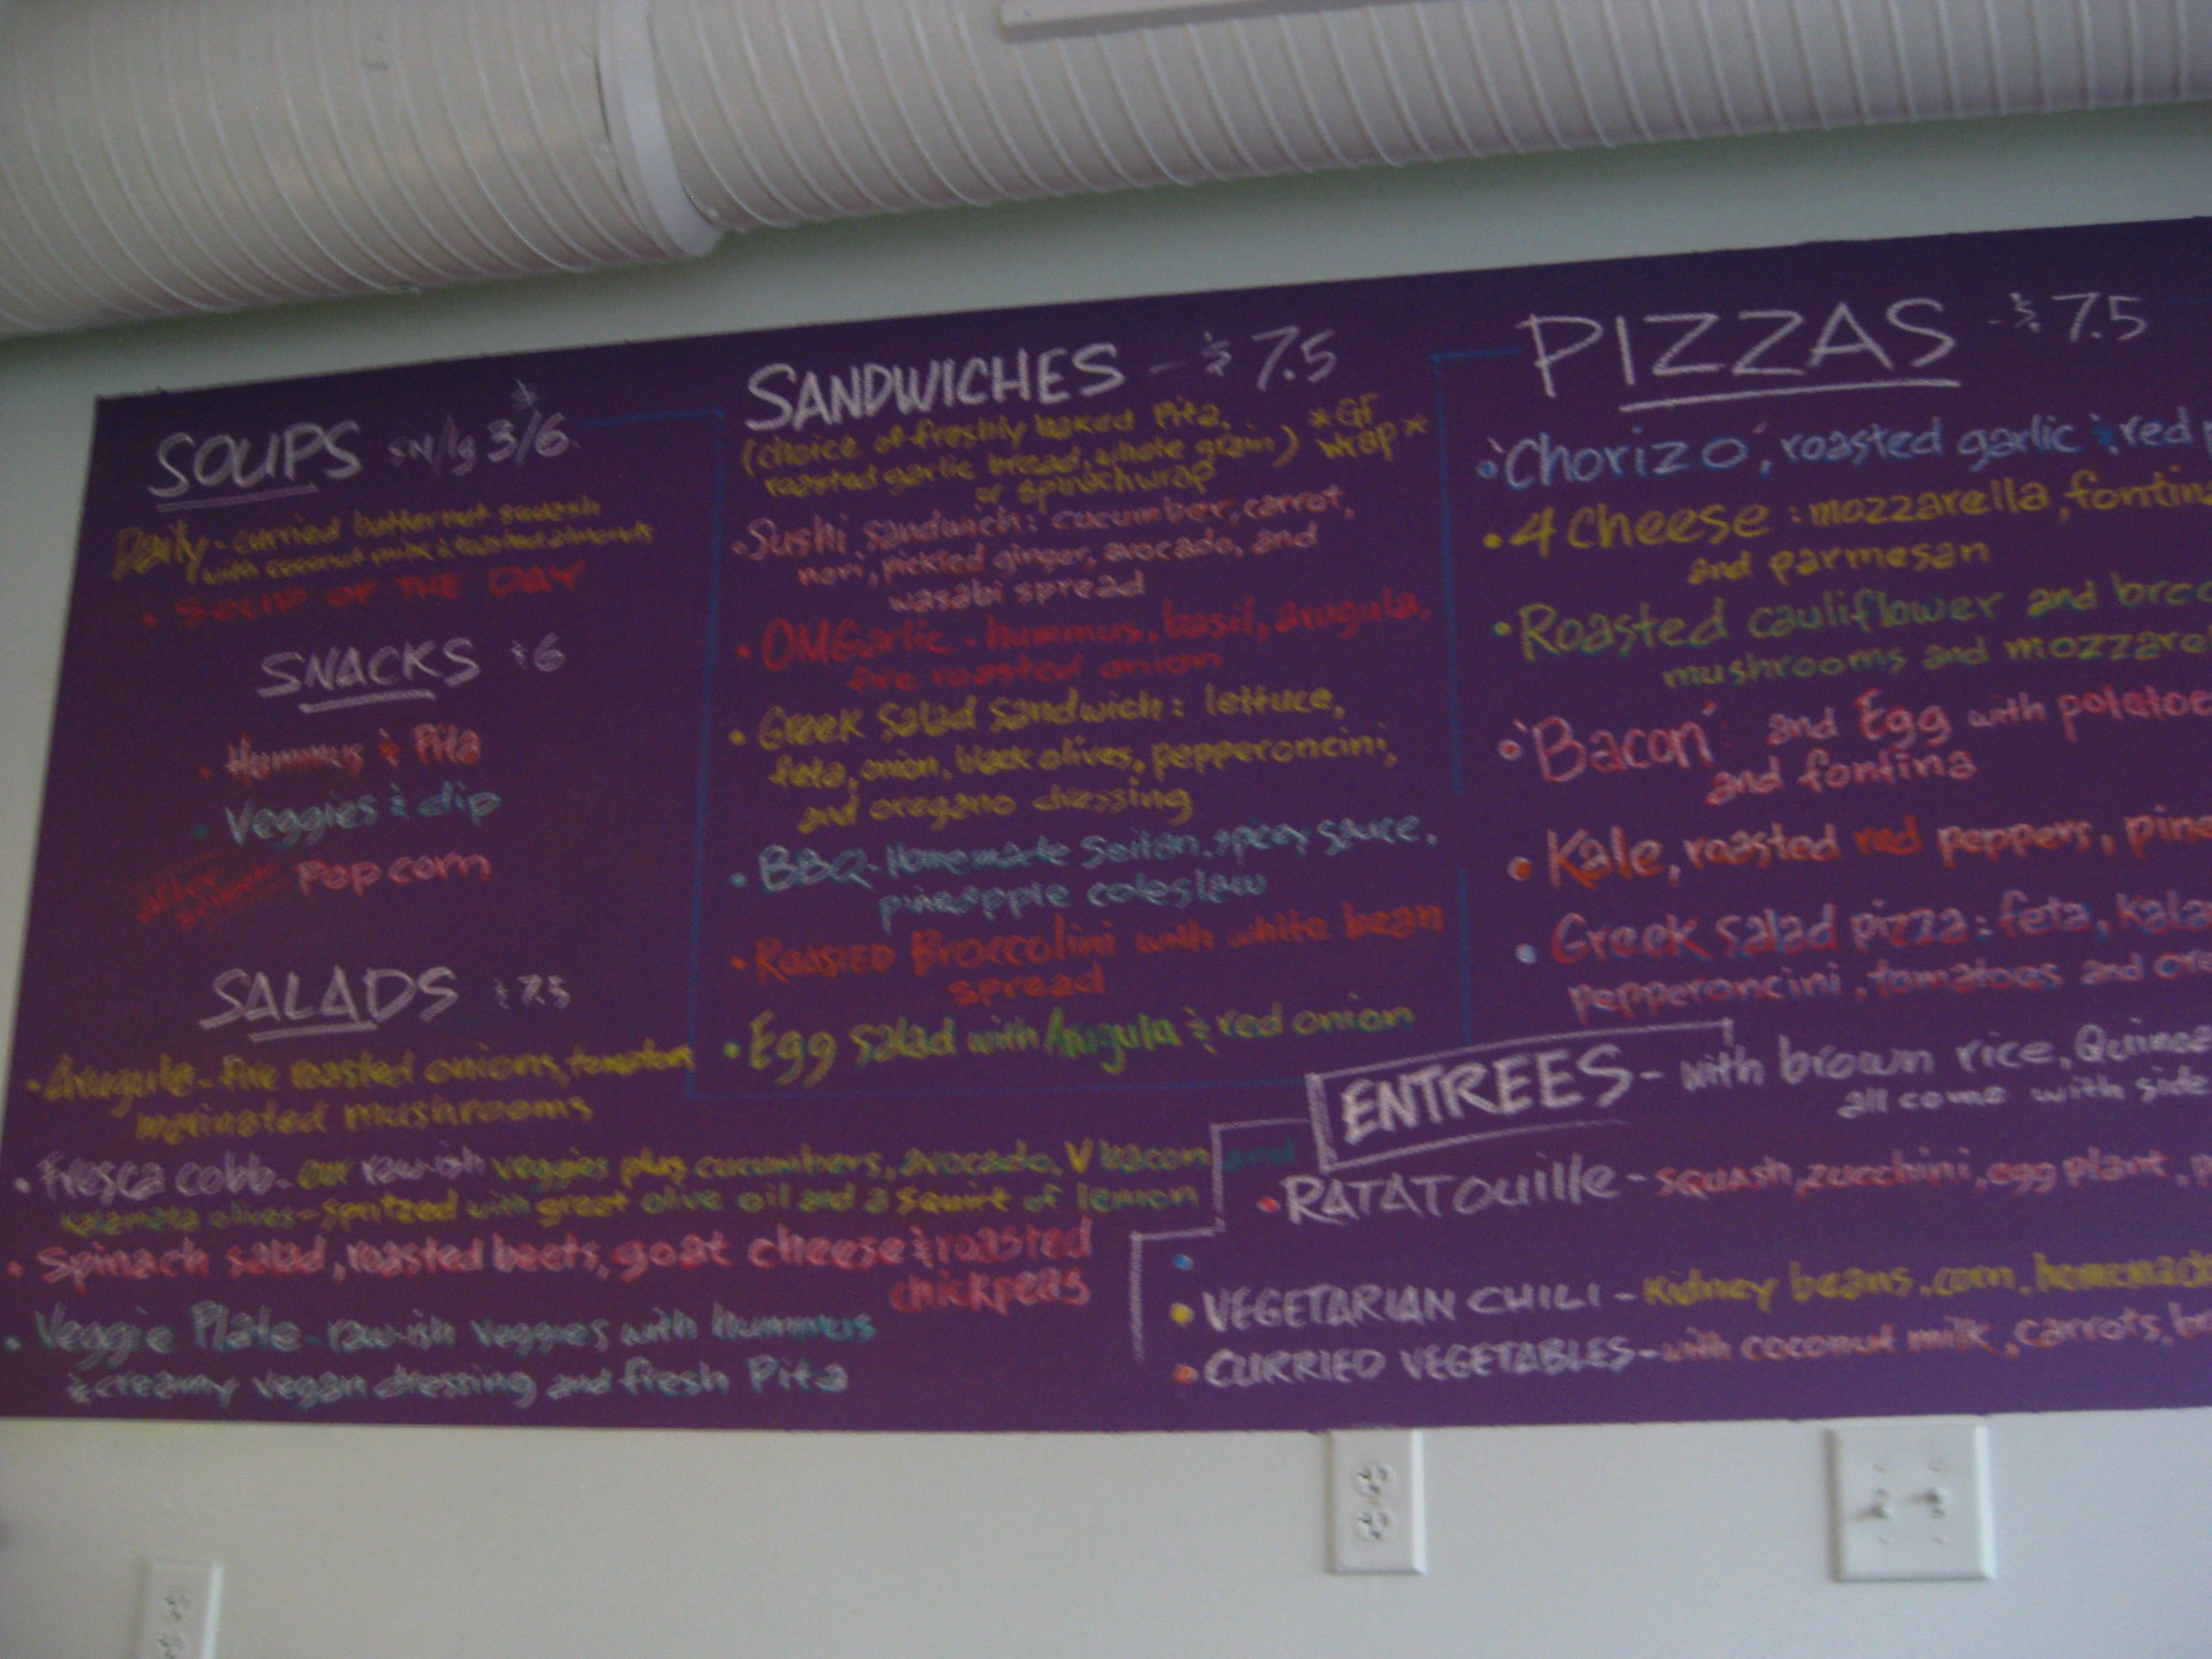 SOUPS sm/lg $3/6
Daily - curried butternut squash
with coconut milk & toasted almonds
• SOUP OF THE DAY
SNACKS $6
• Hummus & Pita
• Veggies & dip
Popcorn
SALADS $7.5
• Arugula - fire roasted onions, tomatoes
marinated mushrooms
• Fresca cobb - our rawish veggies plus cucumbers, avocado, V bacon and
kalamata olives - spritzed with great olive oil and a squirt of lemon
• Spinach salad, roasted beets, goat cheese & roasted
chickpeas
• Veggie Plate - rawish veggies with hummus
& creamy vegan dressing and fresh Pita
SANDWICHES - $7.5
(choice of freshly baked Pita,
roasted garlic bread, whole grain)
or spinach wrap
*GF
wrap*
• Sushi sandwich: cucumber, carrot,
nori, pickled ginger, avocado, and
wasabi spread
• OMGarlic - hummus, basil, arugula,
fire roasted onion
• Greek Salad Sandwich: lettuce,
feta, onion, black olives, pepperoncini,
and oregano dressing
• BBQ - Homemade Seitan, spicy sauce,
pineapple coleslaw
• ROASTED Broccolini with white bean
spread
• Egg Salad with Arugula & red onion
PIZZAS - $7.5
• "Chorizo", roasted garlic & red
• 4 Cheese: mozzarella,
and parmesan
• Roasted cauliflower and
mushrooms and
• "Bacon" and Egg with
and fontina
• Kale, roasted red peppers,
• Greek Salad pizza: feta,
pepperoncini, tomatoes and
ENTREES - with brown rice,
all come with
• RATATOUILLE - squash, zucchini, egg plant,
• VEGETARIAN CHILI - kidney beans, corn,
• CURRIED VEGETABLES - with coconut milk, carrots,